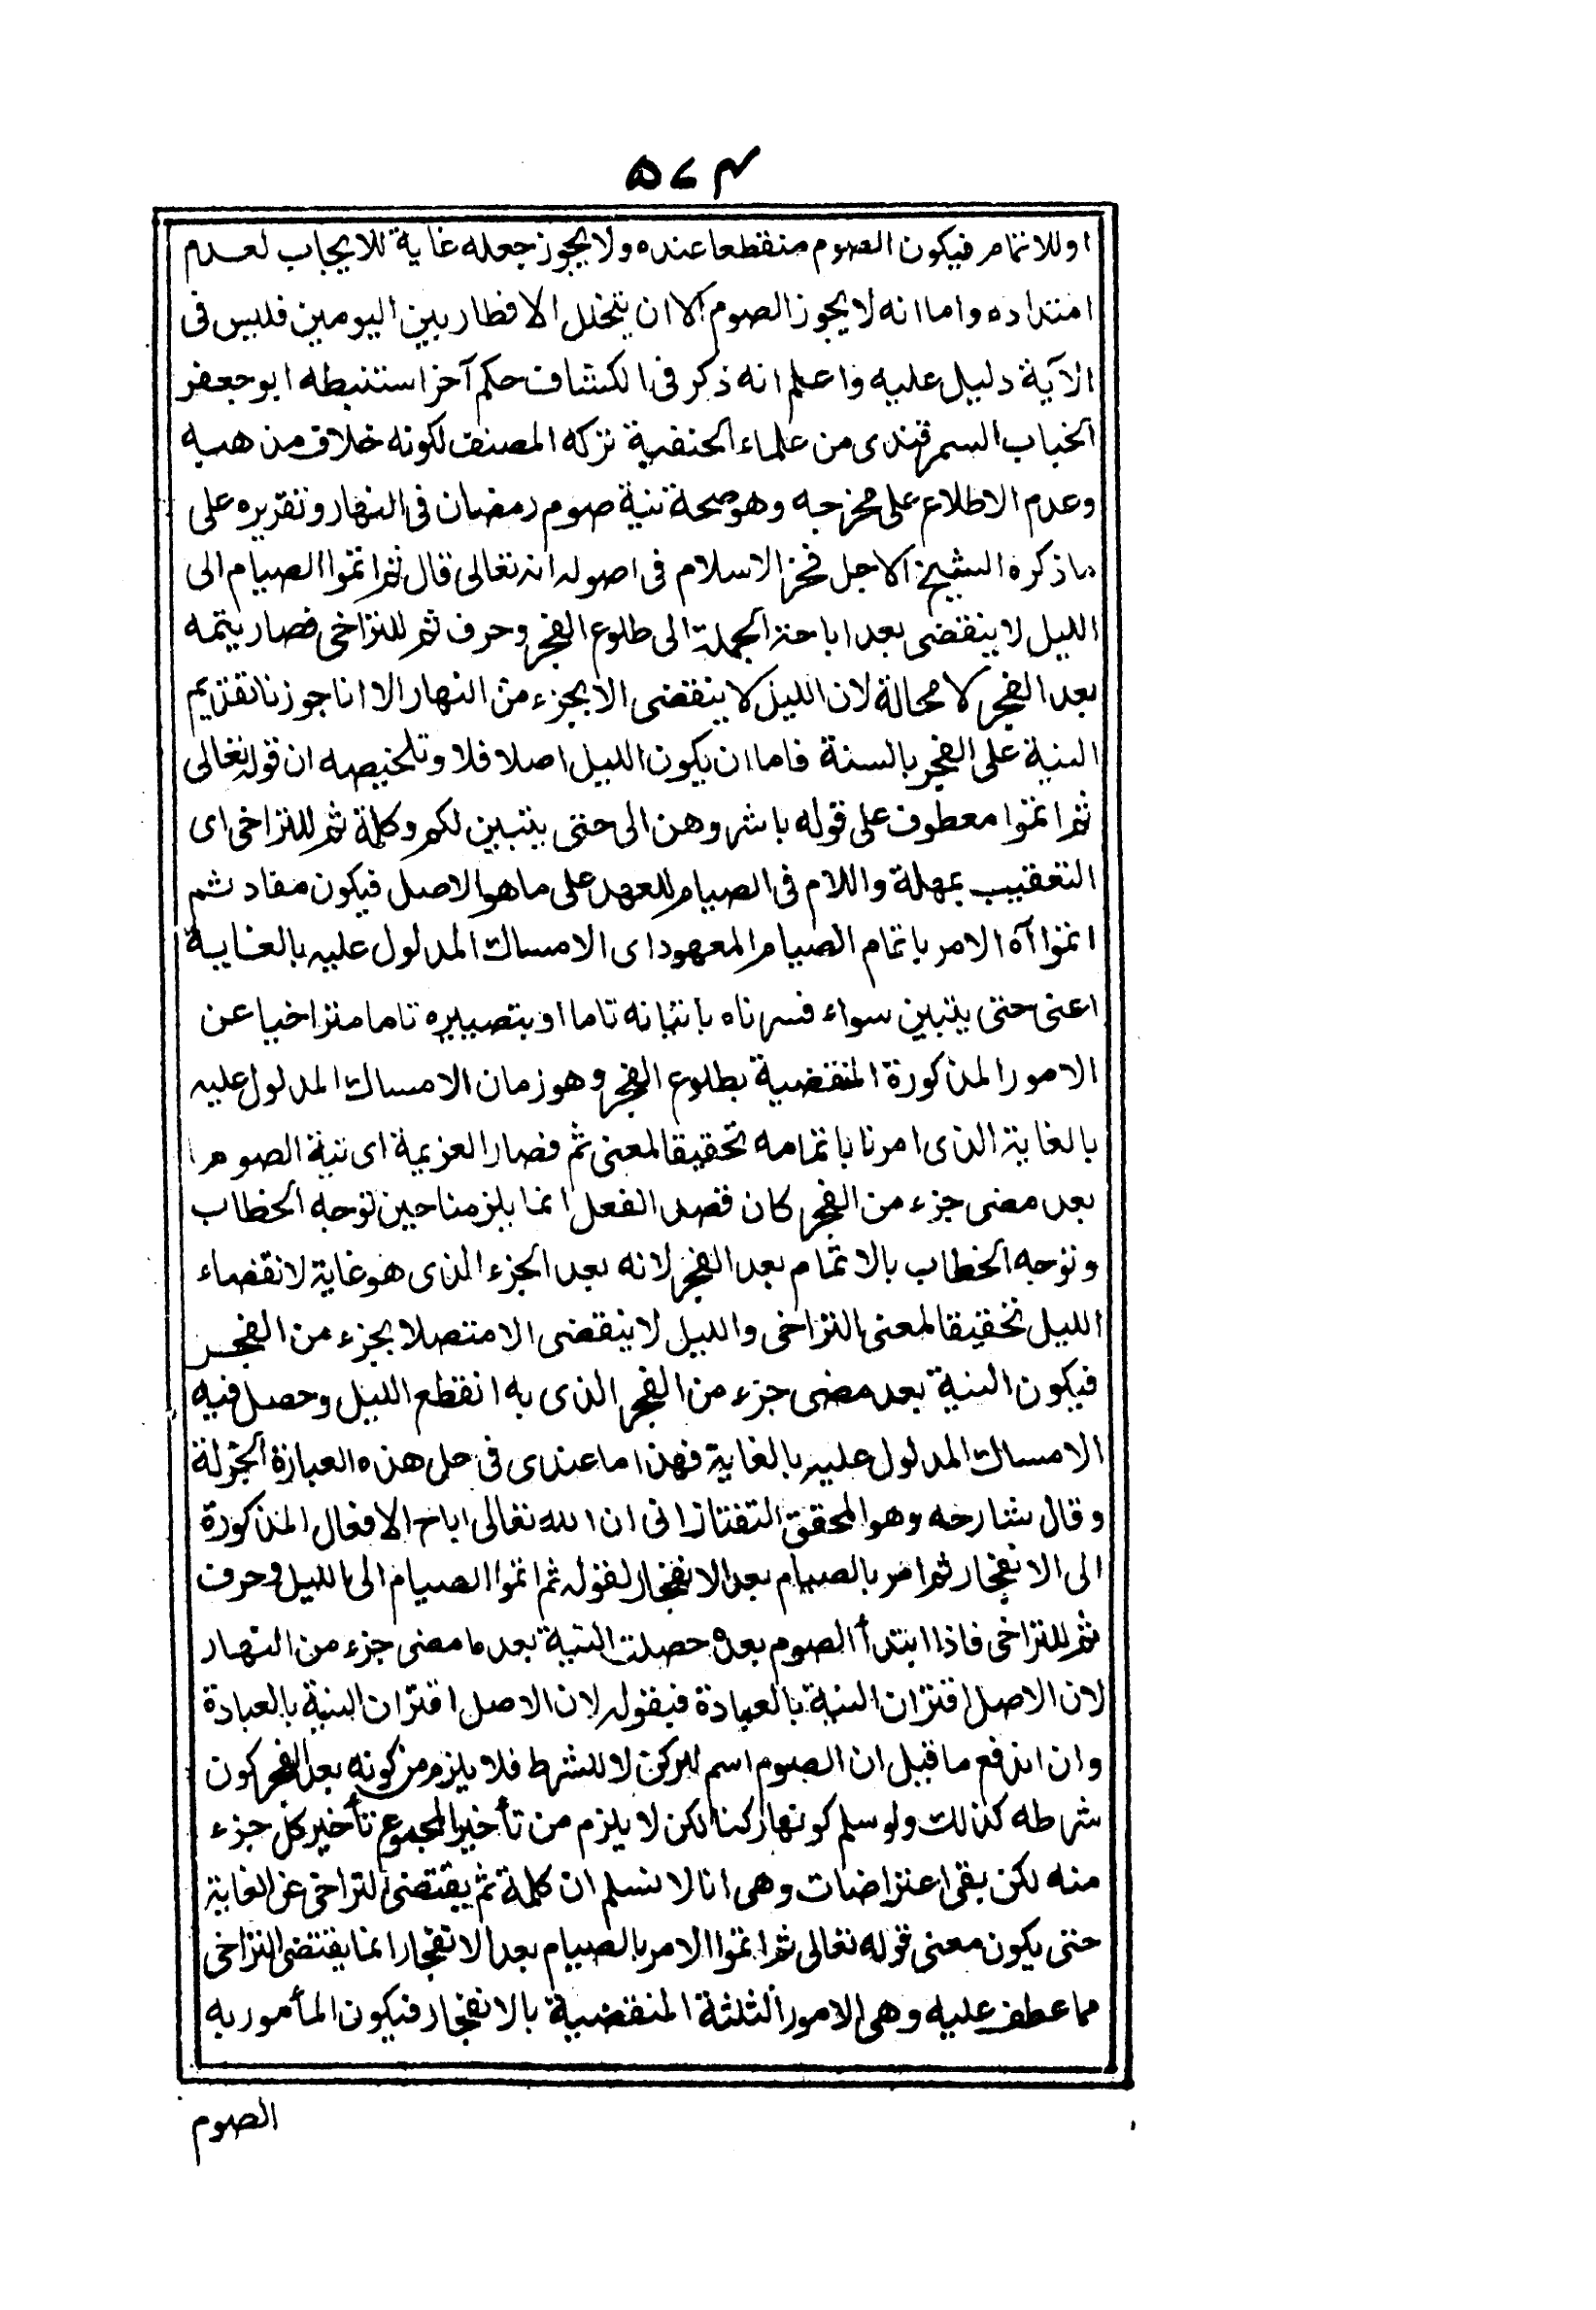 ٥٧٤
او للاتمام فيكون الصوم منقطعا عنده ولا يجوز جعله غاية للايجاب لعدم
امتداده واما انه لا يجوز الصوم الا ان يتخلل الافطار بين اليومين فليس فى
الآية دليل عليه واعلم انه ذكر فى الكشاف حكم آخر استنبطه ابو جعفر
الخباب السمرقندى من علماء الحنفية تركه المصنف لكونه خلاف مذهبه
وعدم الاطلاع على مخرجه وهو صحة نية صوم رمضان فى النهار وتقريره على
ما ذكره الشيخ الاجل فخر الاسلام فى اصوله انه تعالى قال ثم اتموا الصيام الى
الليل لا ينقضى بعد اباحة الجملة الى طلوع الفجر وحرف ثم للتراخى فصار يتمه
بعد الفجر لا محالة لان الليل لا ينقضى الا بجزء من النهار الا انا جوزنا تقديم
النية على الفجر بالسنة فاما ان يكون الليل اصلا فلا وتلخيصه ان قوله تعالى
ثم اتموا معطوف على قوله باشروهن الى حتى يتبين لكم وكلمة ثم للتراخى اى
التعقيب بمهلة واللام فى الصيام للعهد على ما هو الاصل فيكون مفاد ثم
اتموا آه الامر باتمام الصيام المعهود اى الامساك المدلول عليه بالغاية
اعنى حتى يتبين سواء فسرناه باتيانه تاما او بتصييره تاما متراخيا عن
الامور المذكورة المنقضية بطلوع الفجر وهو زمان الامساك المدلول عليه
بالغاية الذى امرنا باتمامه تحقيقا لمعنى ثم فصار العزيمة اى نية الصوم
بعد مضى جزء من الفجر كان قصد الفعل انما يلزمنا حين توجه الخطاب
وتوجه الخطاب بالاتمام بعد الفجر لانه بعد الجزء الذى هو غاية لانقضاء
الليل تحقيقا لمعنى التراخى والليل لا ينقضى الا متصلا بجزء من الفجر
فيكون النية بعد مضى جزء من الفجر الذى به انقطع الليل وحصل فيه
الامساك المدلول عليه بالغاية فهذا ما عندى فى حل هذه العبارة الجزلة
وقال شارحه وهو المحقق التفتازانى ان الله تعالى اباح الافعال المذكورة
الى الانفجار ثم امر بالصيام بعد الانفجار لقوله ثم اتموا الصيام الى الليل وحرف
ثم للتراخى فاذا ابتدأ الصوم بعده حصلت النية بعد ما مضى جزء من النهار
لان الاصل اقتران النية بالعبادة فبقوله لان الاصل اقتران النية بالعبادة
وان اندفع ما قيل ان الصوم اسم للركن لا للشرط فلا يلزم من كونه بعد الفجر كون
شرطه كذلك ولو سلم كونها ركنا لكن لا يلزم من تأخير المجموع تأخير كل جزء
منه لكن بقى اعتراضات وهى انا لا نسلم ان كلمة ثم يقتضى التراخى عن الغاية
حتى يكون معنى قوله تعالى ثم اتموا الامر بالصيام بعد الانفجار انما يقتضى التراخى
مما عطف عليه وهى الامور الثلثة المنقضية بالانفجار فيكون المأمور به
الصوم